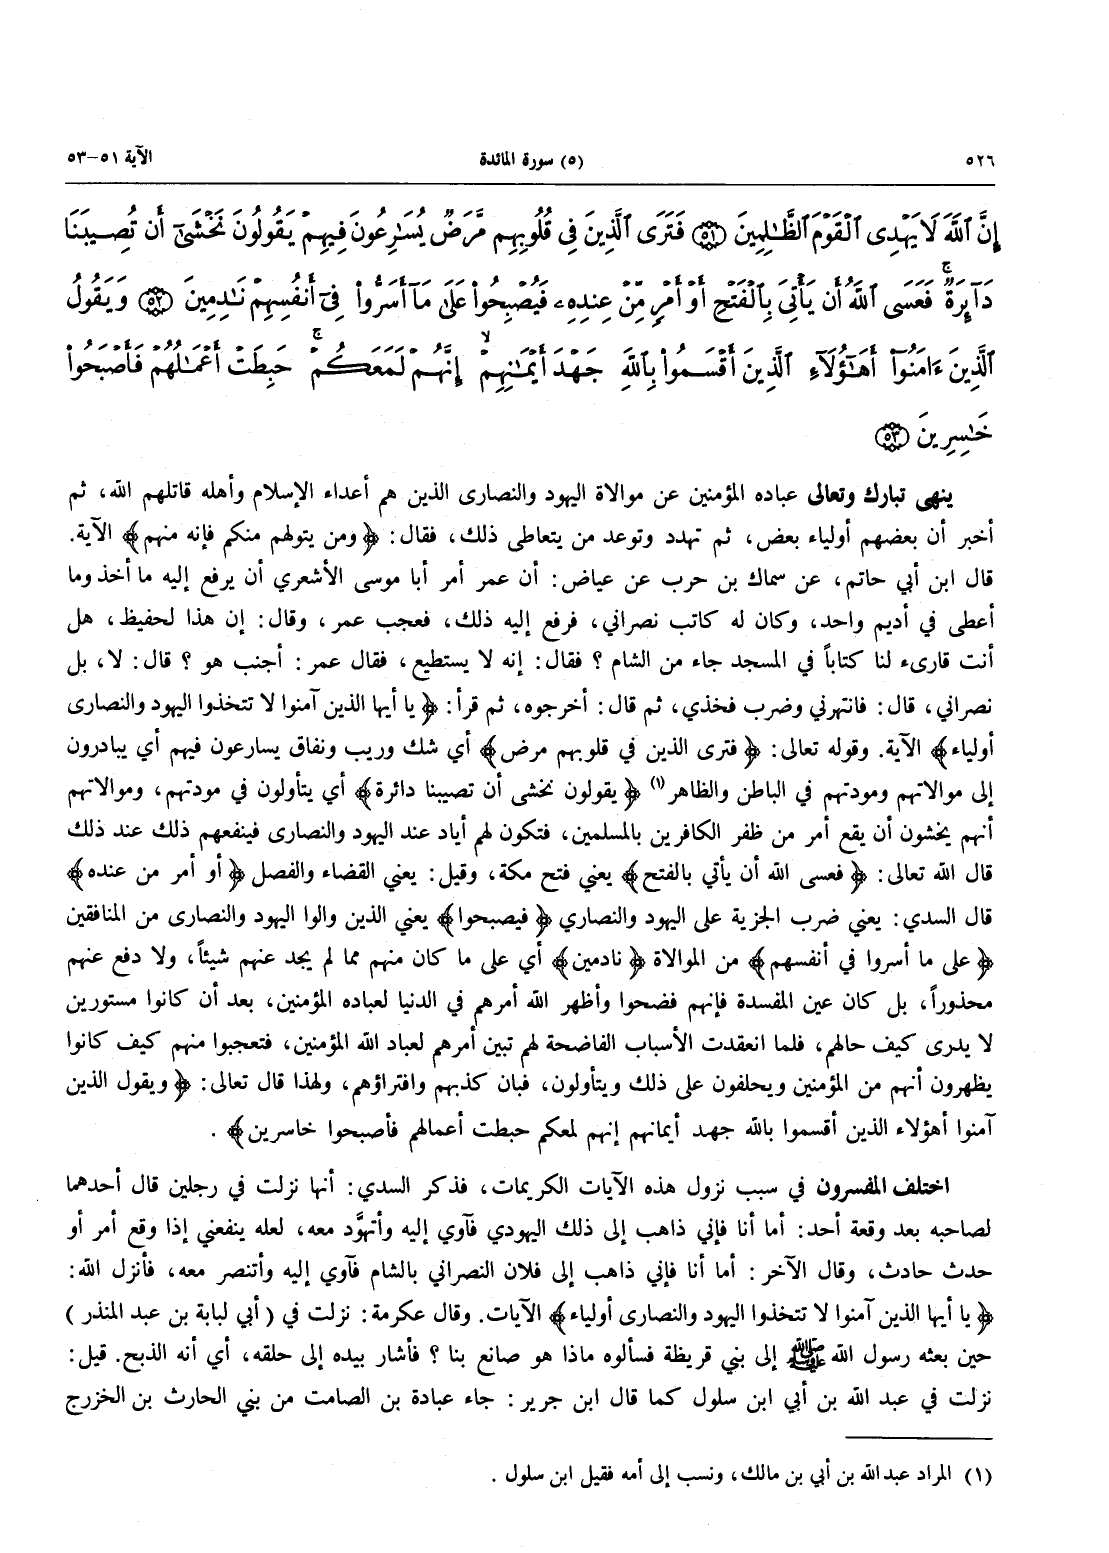 ٥٢٦ (٥) سورة المائدة الآية ٥١–٥٣
إِنَّ ٱللَّهَ لَا يَهْدِى ٱلْقَوْمَ ٱلظَّٰلِمِينَ ﴿٥١﴾ فَتَرَى ٱلَّذِينَ فِى قُلُوبِهِم مَّرَضٌ يُسَٰرِعُونَ فِيهِمْ يَقُولُونَ نَخْشَىٰٓ أَن تُصِيبَنَا
دَآئِرَةٌ ۚ فَعَسَى ٱللَّهُ أَن يَأْتِىَ بِٱلْفَتْحِ أَوْ أَمْرٍ مِّنْ عِندِهِۦ فَيُصْبِحُوا۟ عَلَىٰ مَآ أَسَرُّوا۟ فِىٓ أَنفُسِهِمْ نَٰدِمِينَ ﴿٥٢﴾ وَيَقُولُ
ٱلَّذِينَ ءَامَنُوٓا۟ أَهَٰٓؤُلَآءِ ٱلَّذِينَ أَقْسَمُوا۟ بِٱللَّهِ جَهْدَ أَيْمَٰنِهِمْ ۙ إِنَّهُمْ لَمَعَكُمْ ۚ حَبِطَتْ أَعْمَٰلُهُمْ فَأَصْبَحُوا۟
خَٰسِرِينَ ﴿٥٣﴾
ينهى تبارك وتعالى عباده المؤمنين عن موالاة اليهود والنصارى الذين هم أعداء الإسلام وأهله قاتلهم الله، ثم
أخبر أن بعضهم أولياء بعض، ثم تهدد وتوعد من يتعاطى ذلك، فقال: ﴿ومن يتولهم منكم فإنه منهم﴾ الآية.
قال ابن أبي حاتم، عن سماك بن حرب عن عياض: أن عمر أمر أبا موسى الأشعري أن يرفع إليه ما أخذ وما
أعطى في أديم واحد، وكان له كاتب نصراني، فرفع إليه ذلك، فعجب عمر، وقال: إن هذا لحفيظ، هل
أنت قارىء لنا كتاباً في المسجد جاء من الشام؟ فقال: إنه لا يستطيع، فقال عمر: أجنب هو؟ قال: لا، بل
نصراني، قال: فانتهرني وضرب فخذي، ثم قال: أخرجوه، ثم قرأ: ﴿يا أيها الذين آمنوا لا تتخذوا اليهود والنصارى
أولياء﴾ الآية. وقوله تعالى: ﴿فترى الذين في قلوبهم مرض﴾ أي شك وريب ونفاق يسارعون فيهم أي يبادرون
إلى موالاتهم ومودتهم في الباطن والظاهر(١) ﴿يقولون نخشى أن تصيبنا دائرة﴾ أي يتأولون في مودتهم، وموالاتهم
أنهم يخشون أن يقع أمر من ظفر الكافرين بالمسلمين، فتكون لهم أياد عند اليهود والنصارى فينفعهم ذلك عند ذلك
قال الله تعالى: ﴿فعسى الله أن يأتي بالفتح﴾ يعني فتح مكة، وقيل: يعني القضاء والفصل ﴿أو أمر من عنده﴾
قال السدي: يعني ضرب الجزية على اليهود والنصاري ﴿فيصبحوا﴾ يعني الذين والوا اليهود والنصارى من المنافقين
﴿على ما أسروا في أنفسهم﴾ من الموالاة ﴿نادمين﴾ أي على ما كان منهم مما لم يجد عنهم شيئاً، ولا دفع عنهم
محذوراً، بل كان عين المفسدة فإنهم فضحوا وأظهر الله أمرهم في الدنيا لعباده المؤمنين، بعد أن كانوا مستورين
لا يدرى كيف حالهم، فلما انعقدت الأسباب الفاضحة لهم تبين أمرهم لعباد الله المؤمنين، فتعجبوا منهم كيف كانوا
يظهرون أنهم من المؤمنين ويحلفون على ذلك ويتأولون، فبان كذبهم وافتراؤهم، ولهذا قال تعالى: ﴿ويقول الذين
آمنوا أهؤلاء الذين أقسموا بالله جهد أيمانهم إنهم لمعكم حبطت أعمالهم فأصبحوا خاسرين﴾ .
اختلف المفسرون في سبب نزول هذه الآيات الكريمات، فذكر السدي: أنها نزلت في رجلين قال أحدهما
لصاحبه بعد وقعة أحد: أما أنا فإني ذاهب إلى ذلك اليهودي فآوي إليه وأتهوَّد معه، لعله ينفعني إذا وقع أمر أو
حدث حادث، وقال الآخر: أما أنا فإني ذاهب إلى فلان النصراني بالشام فآوي إليه وأتنصر معه، فأنزل الله:
﴿يا أيها الذين آمنوا لا تتخذوا اليهود والنصارى أولياء﴾ الآيات. وقال عكرمة: نزلت في (أبي لبابة بن عبد المنذر)
حين بعثه رسول الله ﷺ إلى بني قريظة فسألوه ماذا هو صانع بنا؟ فأشار بيده إلى حلقه، أي أنه الذبح. قيل:
نزلت في عبد الله بن أبي ابن سلول كما قال ابن جرير: جاء عبادة بن الصامت من بني الحارث بن الخزرج
(١) المراد عبد الله بن أبي بن مالك، ونسب إلى أمه فقيل ابن سلول .